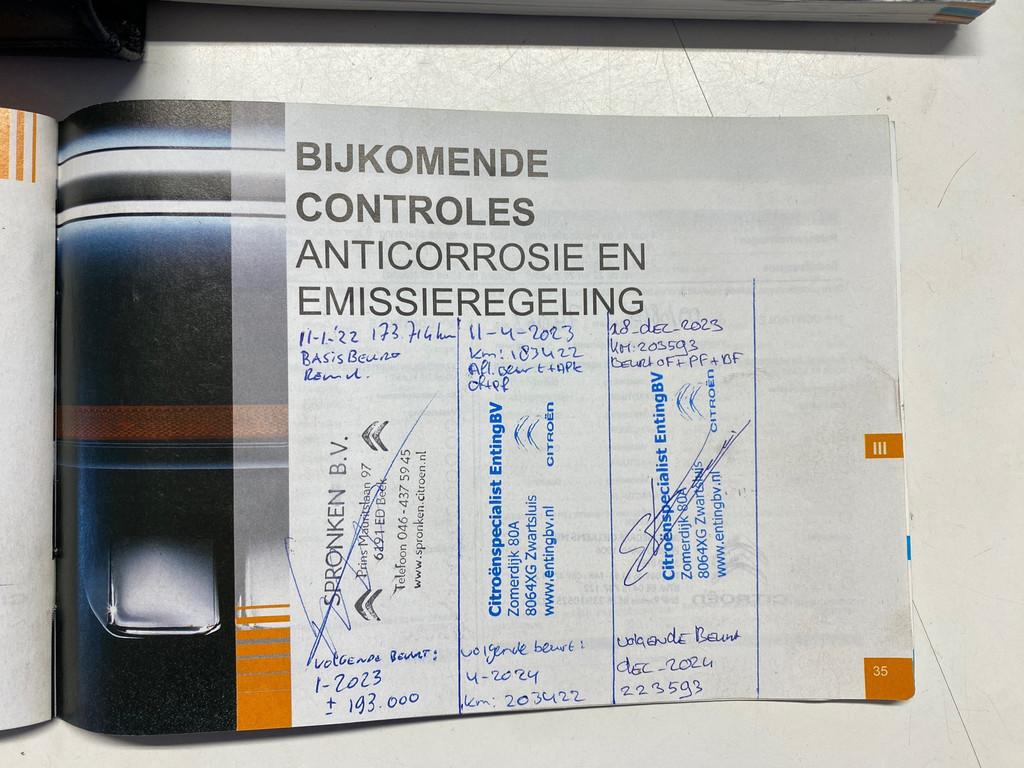 BIJKOMENDE
CONTROLES
ANTICORROSIE EN
EMISSIEREGELING
11-1-'22 173.714 km
BASIS BEURT
SPRONKEN B.V.
Prins Mauritslaan 97
6191 ED Beek
Telefoon 046 - 437 59 45
www.spronken.citroen.nl
VOLGENDE BEURT:
1-2023
± 193.000
11-4-2023
km: 183422
Afl. beurt + APK
OF+PF
Citroënspecialist EntingBV
Zomerdijk 80A
8064XG Zwartsluis
www.entingbv.nl
CITROËN
volgende beurt:
4-2024
km: 203422
18-DEC-2023
KM: 203593
BEURT OF+PF+BF
Citroënspecialist EntingBV
Zomerdijk 80A
8064XG Zwartsluis
www.entingbv.nl
CITROËN
VOLGENDE BEURT
DEC-2024
223593
III
35